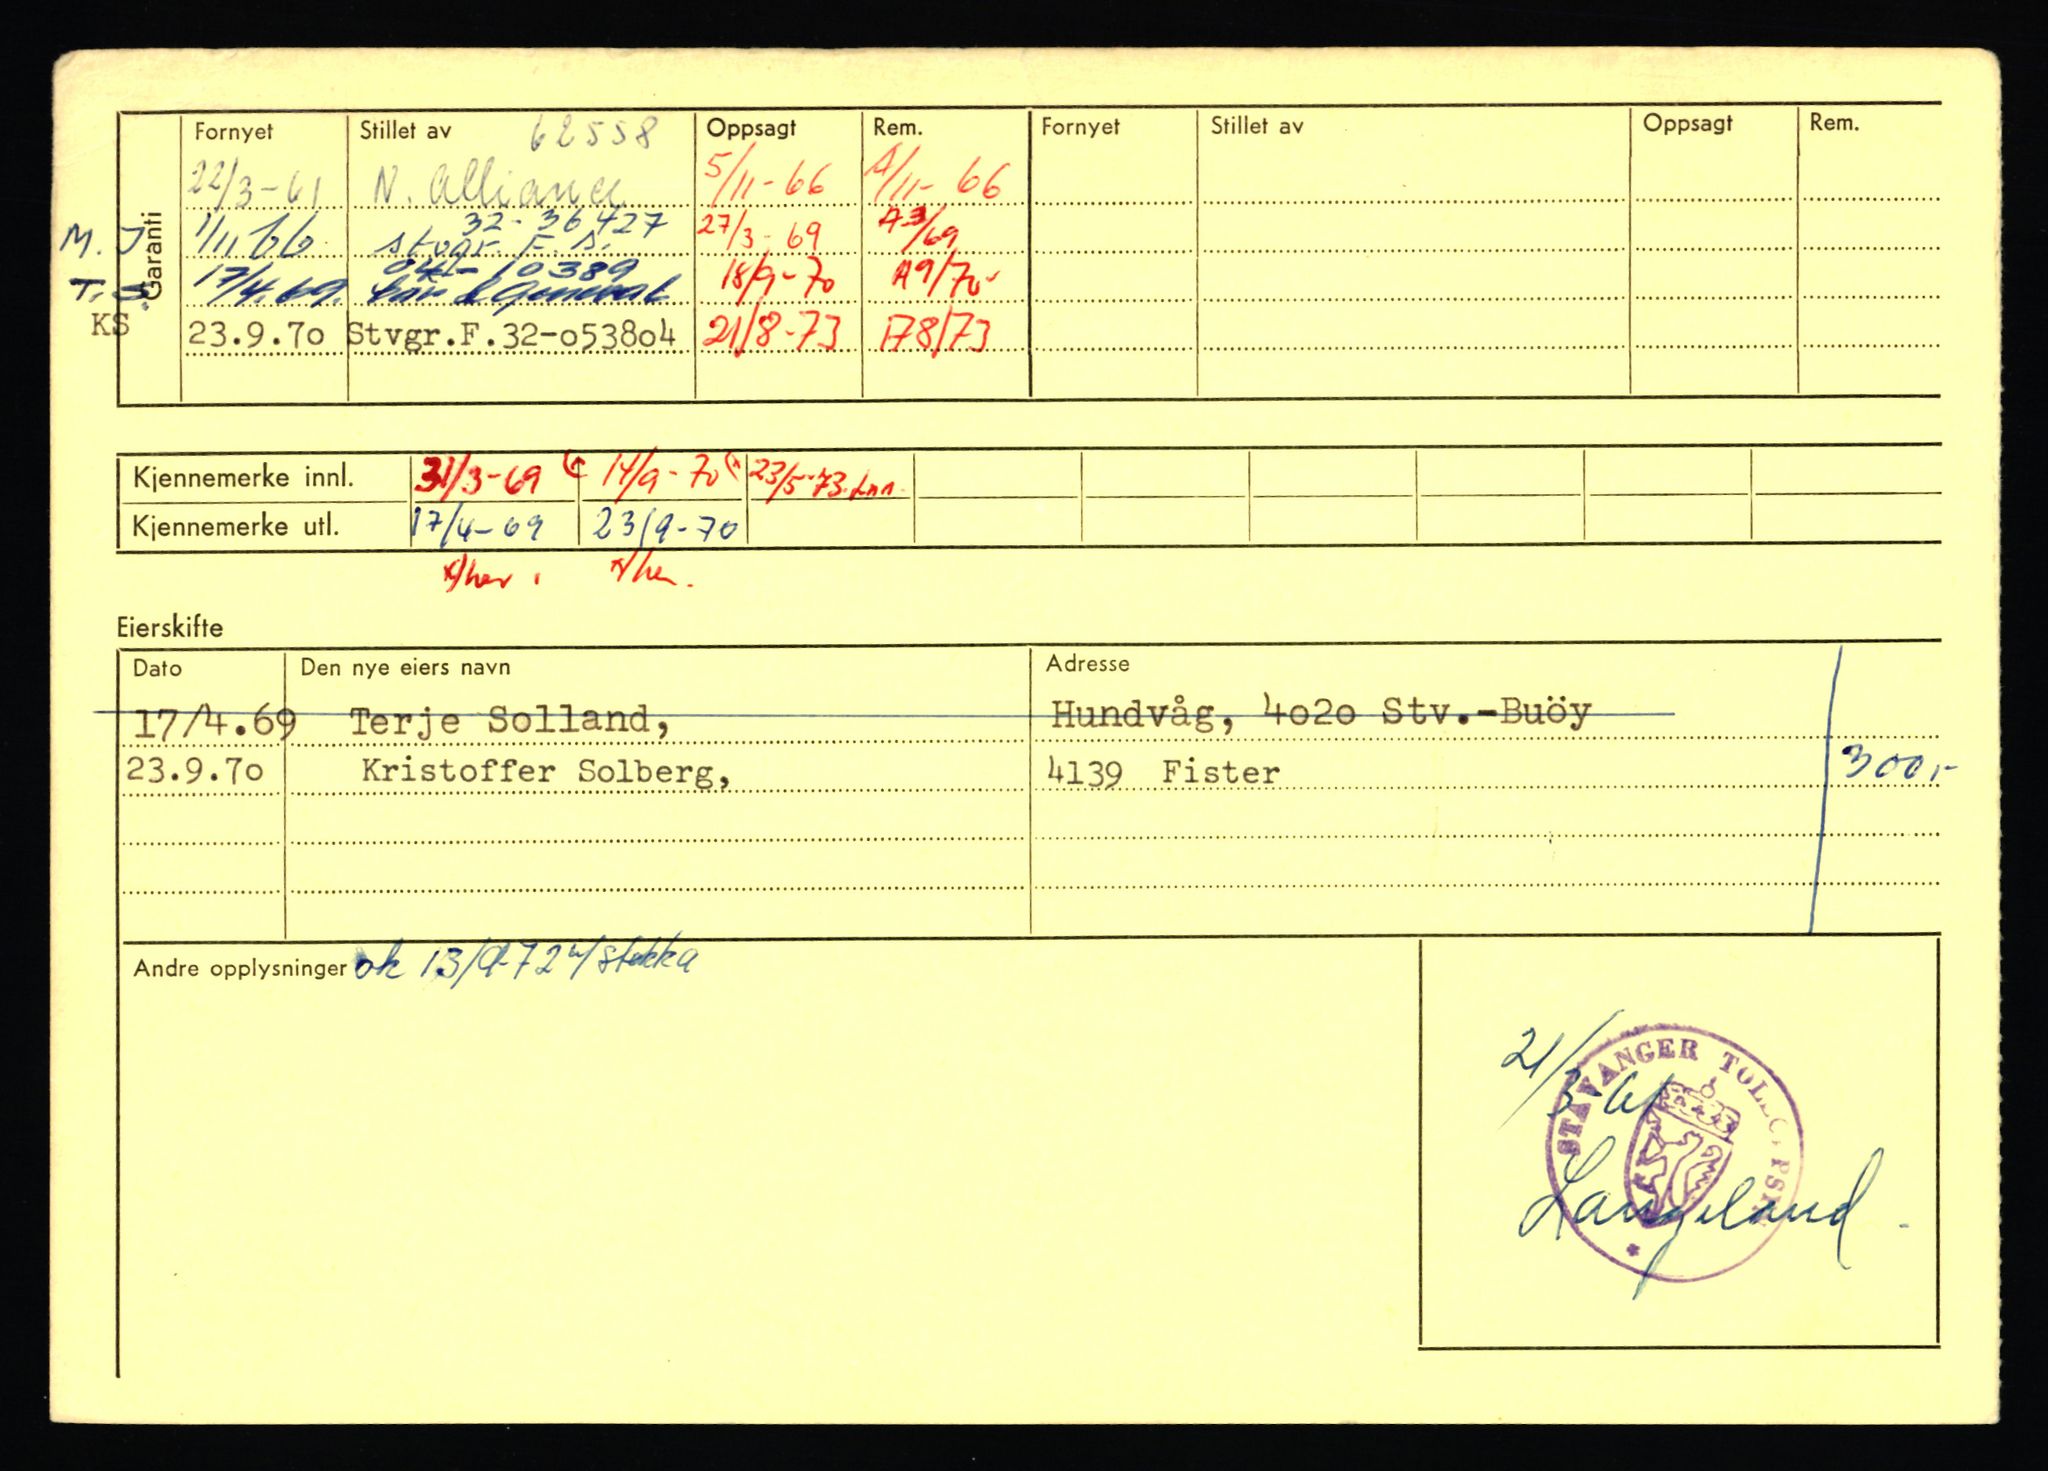 Garanti
Fornyet Stillet av 62558 Oppsagt Rem. Fornyet Stillet av Oppsagt Rem.
22/3-61 N. Alliance 5/11-66 A/11-66
32-36427
M. J 1/11 66 Stvgr. F. s. 27/3-69 A3/69
041-10389
T.S. 17/4.69. 18/9-70 A9/70-
KS 23.9.7o Stvgr.F.32-o538o4 21/8-73 178/73
Kjennemerke innl. 31/3-69 14/9-70 23/5-73.
Kjennemerke utl. 17/4-69 23/9-70
Eierskifte
Dato Den nye eiers navn Adresse
17/4.69 Terje Solland, Hundvåg, 4o2o Stv.-Buöy
23.9.7o Kristoffer Solberg, 4139 Fister 300,-
Andre opplysninger ok 13/9-72 stokka
21/3-61
STAVANGER
Langeland